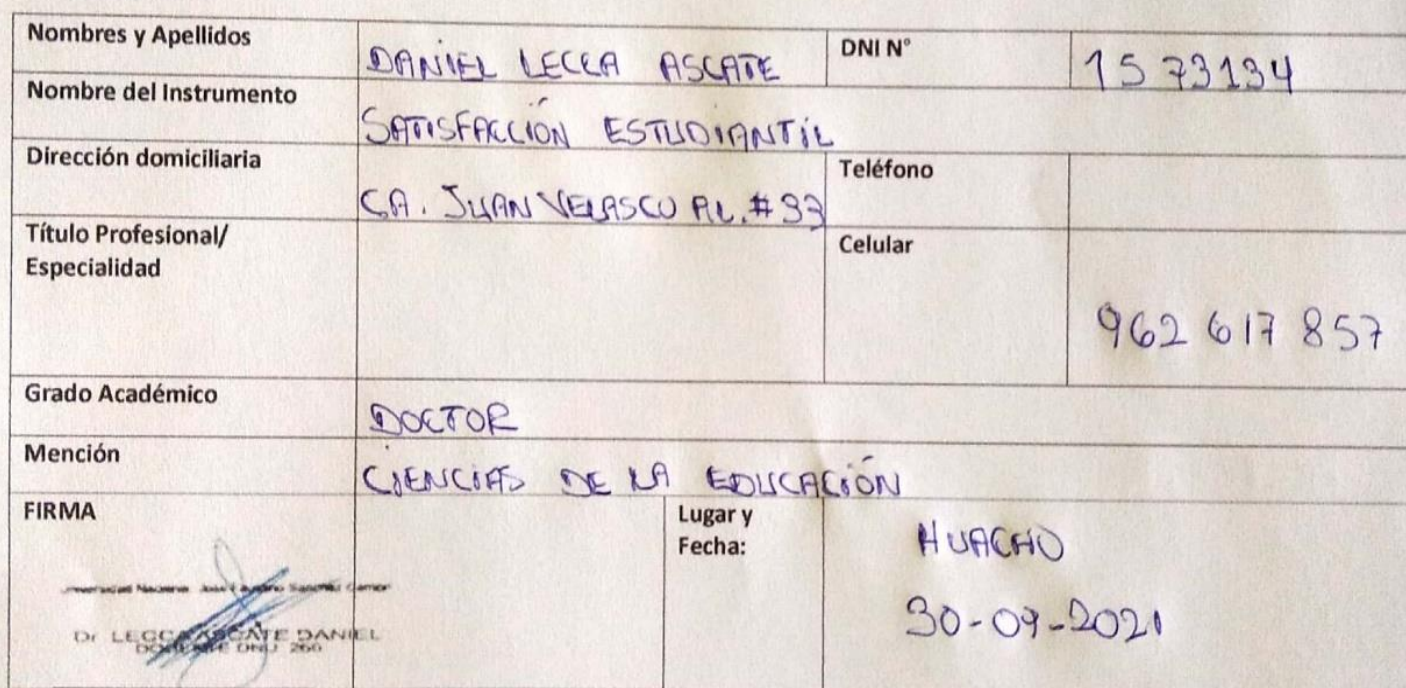 Nombres y Apellidos DANIEL LECCA ASCATE DNI N° 1573134
Nombre del Instrumento SATISFACCIÓN ESTUDIANTIL
Dirección domiciliaria CA. JUAN VELASCO AL. #33 Teléfono
Título Profesional/
Especialidad
Celular 962 617 857
Grado Académico DOCTOR
Mención CIENCIAS DE LA EDUCACIÓN
FIRMA
Lugar y
Fecha:
HUACHO
30-09-2021
Universidad Nacional José Faustino Sánchez Carrión
Dr LECCA ASCATE DANIEL
DOCENTE DNU 260